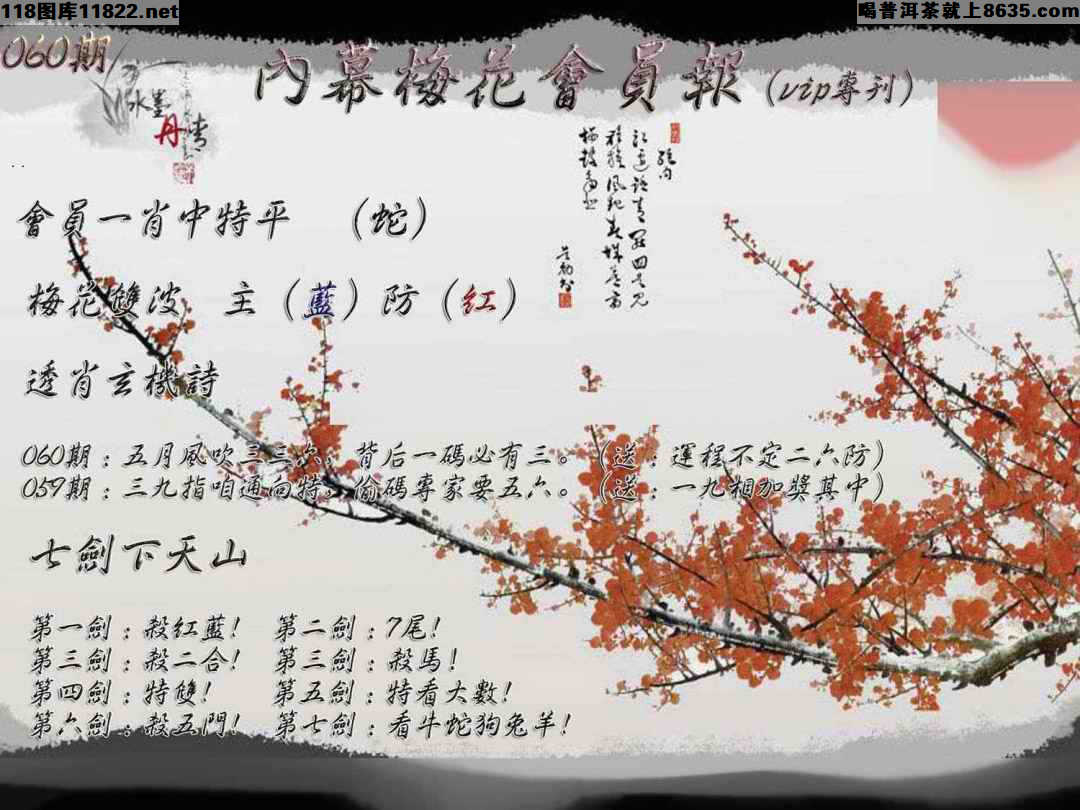 118图库11822.net
喝普洱茶就上8635.com
060期
內幕梅花會員報(vip專刊)
水墨
丹青
會員一肖中特平 (蛇)
梅花雙波 主(藍)防(紅)
透肖玄機詩
060期:五月風吹三三六,背后一碼必有三。(送:運程不定二六防)
059期:三九指咱通向特,偷碼專家要五六。(送:一九相加獎其中)
七劍下天山
第一劍:殺紅藍! 第二劍:7尾!
第三劍:殺二合! 第三劍:殺馬!
第四劍:特雙! 第五劍:特看大數!
第六劍:殺五門! 第七劍:看牛蛇狗兔羊!